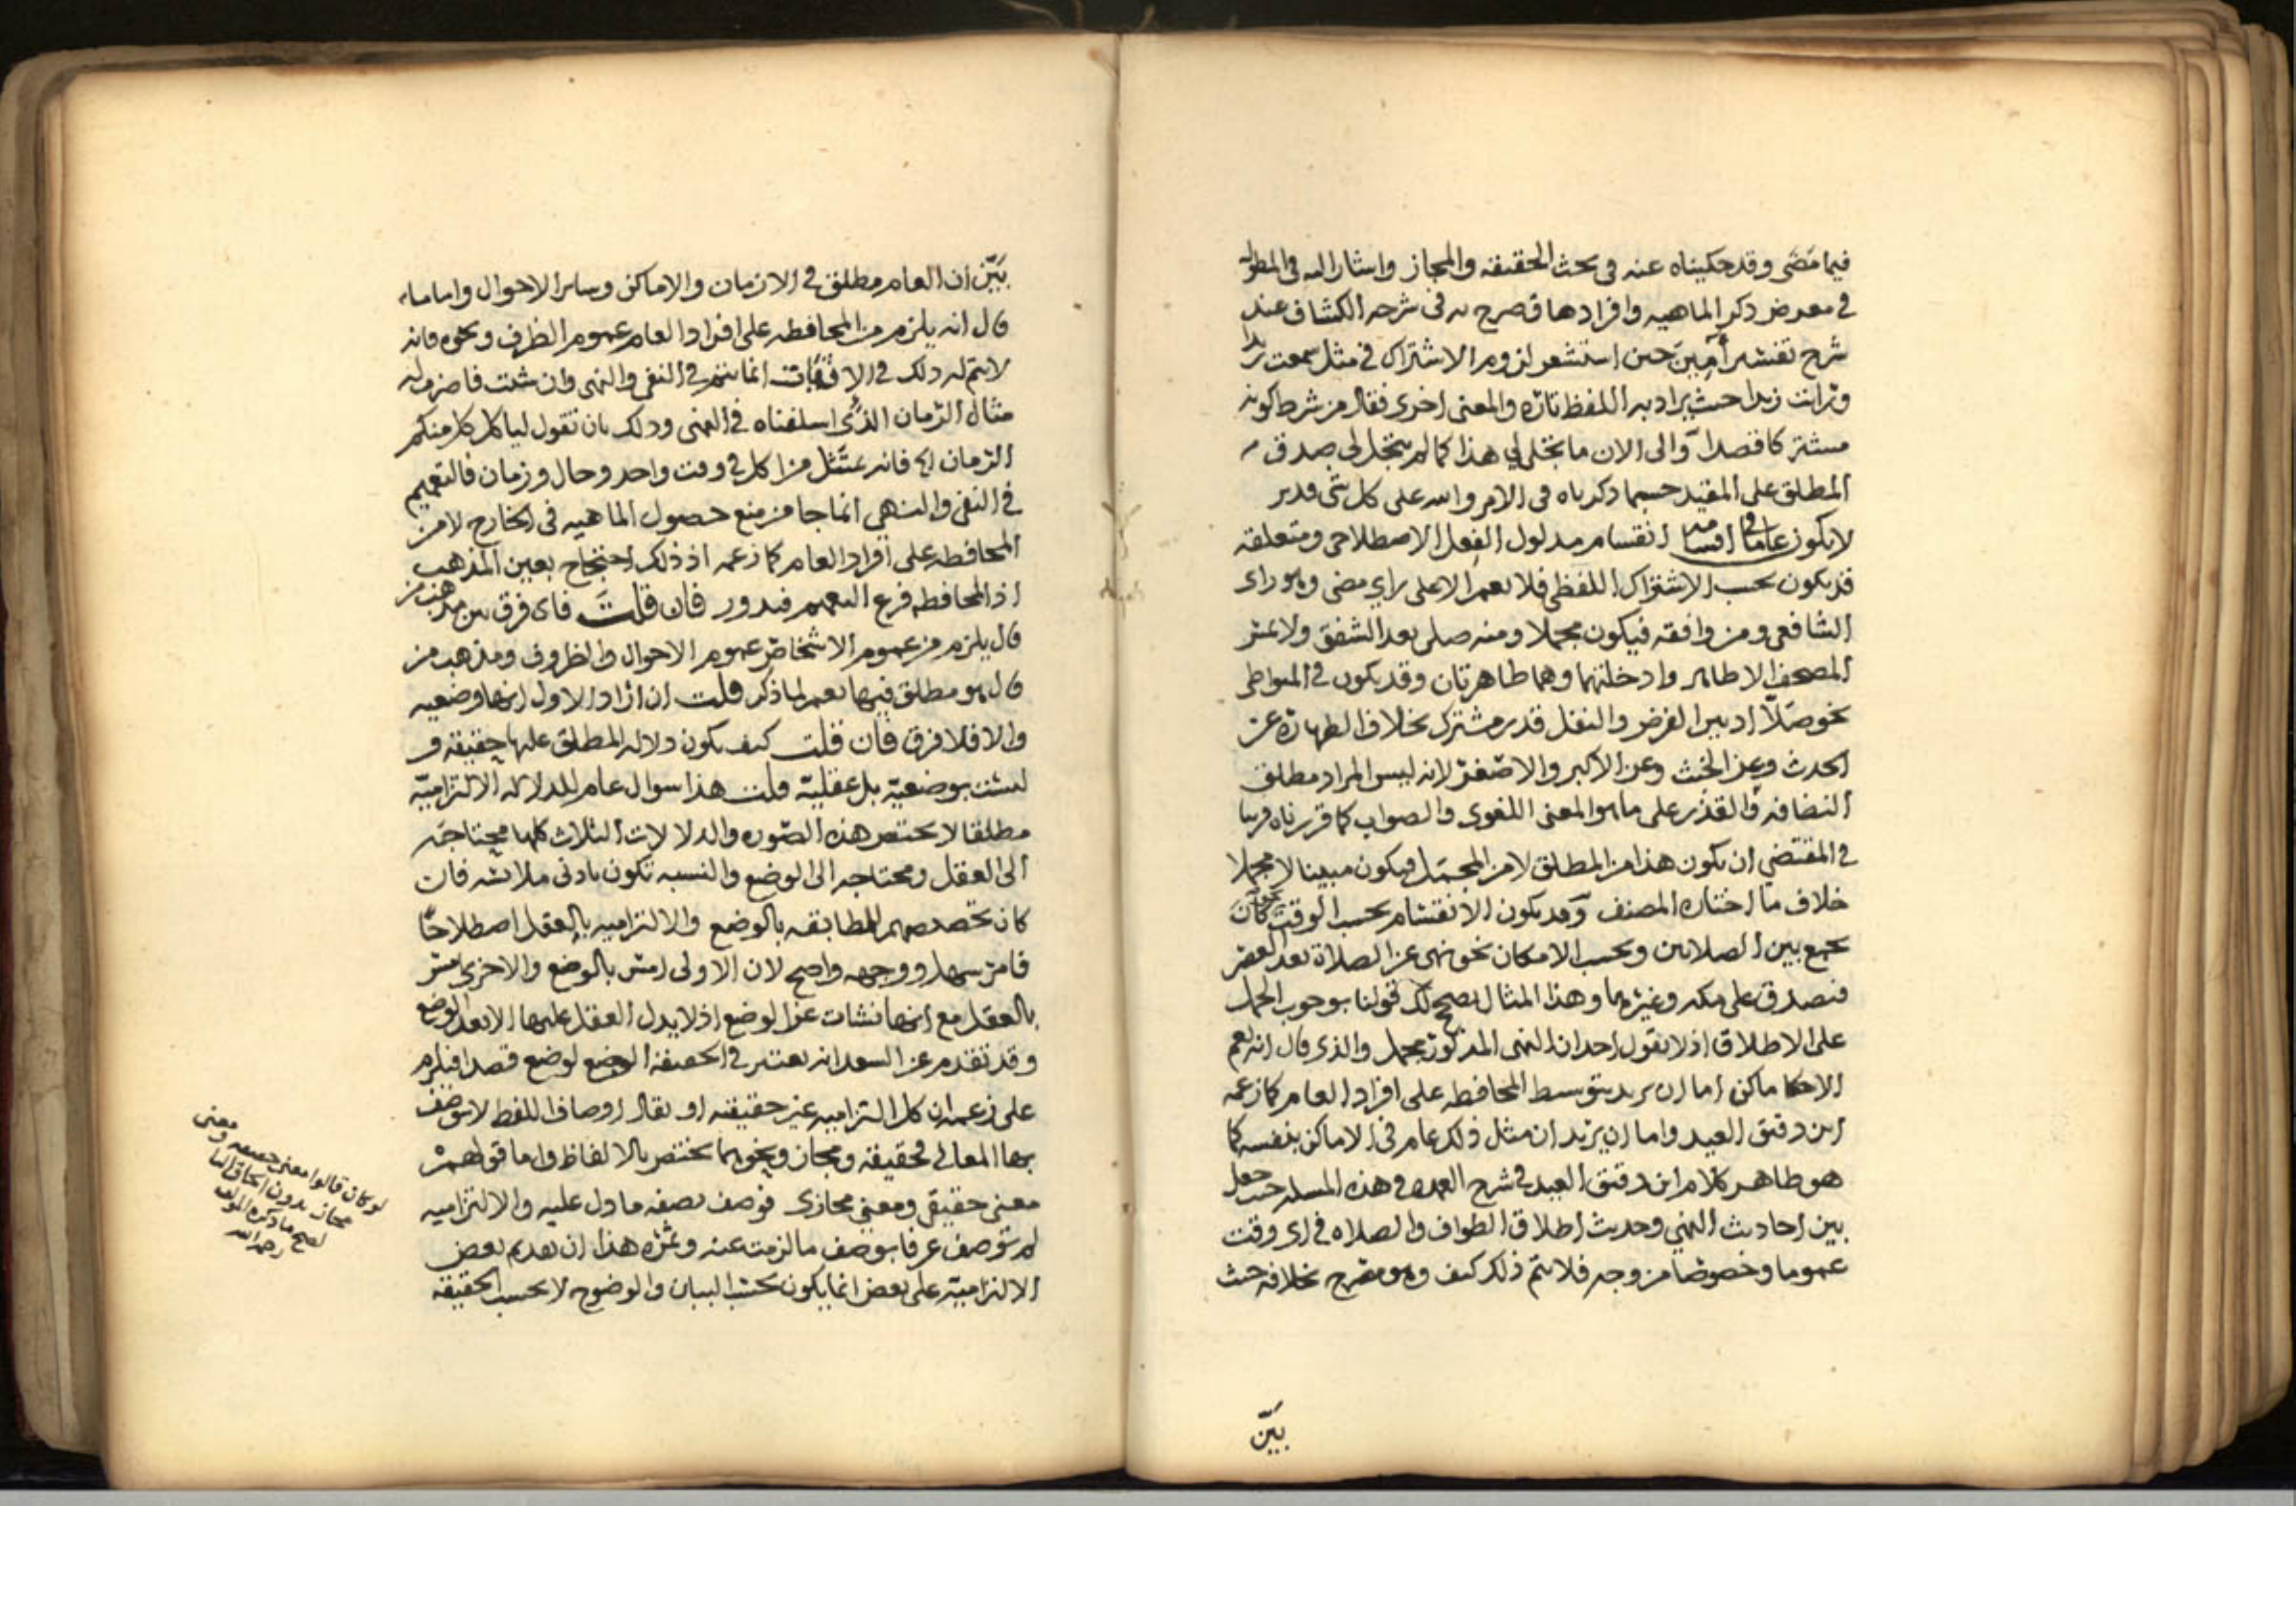 فيما مضى وقد حكيناه عنه فى بحث الحقيقه والمجاز واشار اليه فى المطول
فى معرض ذكر الماهيه وافرادها وصرح به فى شرحه الكشاف عند
شرح تفسير آمين حين استشعر لزوم الاشتراك فى مثل سمعت زيدا
زيدا حيث يراد به اللفظ تارة والمعنى اخرى فقال من شرط كونه
مشتركا قصدا والى الان ما تجلى لي هذا كما لم يتجل لى صدق
المطلق على المقيد حسبما ذكرناه فى الامر والله على كل شى قدير
لا يكون عاما فى اقسامه انقسام مدلول الفعل الاصطلاحى ومتعلقه
قد يكون بحسب الاشتراك اللفظى فلا يعم الا على راي مضى وهو راى
الشافعى ومن وافقه فيكون مجملا ومنه صلى بعد الشفق ولا يمس
المصحف الا طاهر وادخلتهما وهما طاهرتان وقد يكون فى المتواطى
نحو صلا اذ بين الفرض والنفل قدر مشترك بخلاف الطهارة عن
الحدث وعن الخبث وعن الاكبر والاصغر لانه ليس المراد مطلق
النضافه والقذر على ما هو المعنى اللغوى والصواب كما قررناه قريبا
فى المقتضي ان يكون هذا من المطلق لا من المجمل فيكون مبينا لا مجملا
خلاف ما اختاره المصنف وقد يكون الانقسام بحسب الوقت نحو كان
يجمع بين الصلاتين وبحسب الامكان نحو نهى عن الصلاة بعد العصر
فيصدق على مكه وغيرها وهذا المثال يصحح لك قولنا بوجوب الحمل
على الاطلاق اذ لا يقول احد ان النهى المذكور مجمل والذى قال انه يعم
الاماكن اما ان يريد بتوسط المحافظه على افراد العام كما زعمه
ابن دقيق العيد واما ان يريد ان مثل ذلك عام فى الاماكن بنفسه كما
هو ظاهر كلام ابن دقيق العيد فى شرح العمده فى هذه المسله حيث جعل
بين احاديث النهي وحديث اطلاق الطواف والصلاه فى اى وقت
عموما وخصوصا من وجه فلا يتم ذلك كيف وهو مصرح بخلافه حيث
بيّن
بيّن ان العام مطلق فى الازمان والاماكن وساير الاحوال واما ما
قال انه يلزم من المحافظه على افراد العام عموم الظرف ونحوه فانه
لا يتم له ذلك فى الاثبات انما يتم فى النفى والنهى وان شئت فاضرب له
مثال الزمان الذى اسلفناه فى النهى وذلك بان تقول لياكل كل منكم
الرمان فانه يمتثل من اكل فى وقت واحد وحال وزمان فالتعميم
فى النفى والنهي انما جا من منع حصول الماهيه فى الخارج لا من
المحافظه على افراد العام كما زعمه اذ ذلك احتجاج بعين المذهب
اذ المحافظه فرع التعميم فيدور فان قلت فاى فرق بين مذهب من
قال يلزم من عموم الاشخاص عموم الاحوال والظروف ومذهب من
قال هو مطلق فيها يعم لما ذكر قلت ان اراد الاول انها وضعيه
والا فلا فرق فان قلت كيف يكون دلاله المطلق عليها حقيقه و
ليست بوضعية بل عقلية قلت هذا سوال عام للدلاله الالتزامية
مطلقا لا يختص هذه الصوره والدلالات الثلاث كلها محتاجه
الى العقل ومحتاجه الى الوضع والنسبه تكون بادنى ملابسه فان
كان تخصيصهم للمطابقه بالوضع والالتزاميه بالعقل اصطلاحًا
فامر سهل ووجهه واضح لان الاولى امس بالوضع والاخرى امس
بالعقل مع انها نشات عن الوضع اذ لا يدل العقل عليها الا بعد الوضع
وقد تقدم عن السعد انه يعتبر فى الحقيقة الوضع لوضع قصدا فيلزم
على زعمه ان كل التزاميه غير حقيقته او يقال اوصاف اللفظ لا توصف
بها المعانى فحقيقه ومجاز ونحوهما يختص بالالفاظ واما قولهم
معنى حقيقى ومعنى مجازى فوصف بصفه ما دل عليه والالتزاميه
لم توصف عرفا بوصف ما لزمت عنه وثمره هذا ان تقديم بعض
الالتزامية على بعض انما يكون بحسب البيان والوضوح لا بحسب الحقيقه
لو كان قالوا معنى حقيقه ومعنى
مجاز بدون الحاق اليا
لصح ما ذكره المولف
رحمه الله